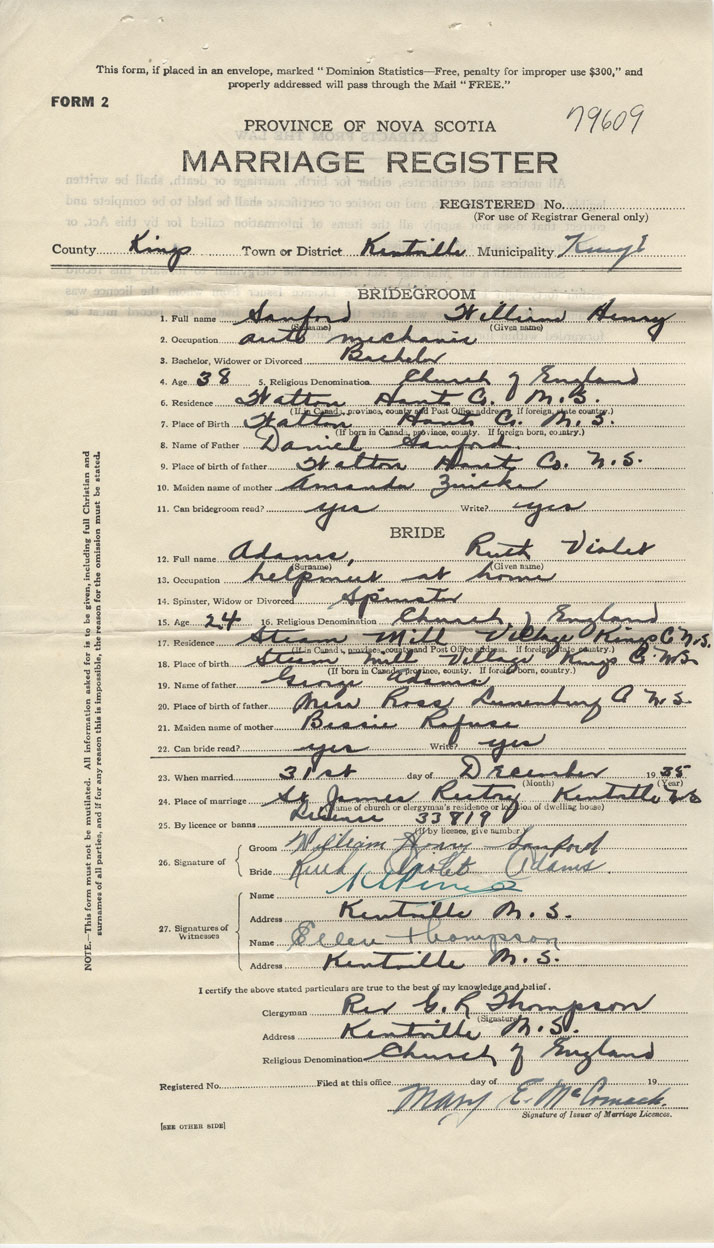 This form, if placed in an envelope, marked "Dominion Statistics—Free, penalty for improper use $300," and
properly addressed will pass through the Mail "FREE."
FORM 2
79609
PROVINCE OF NOVA SCOTIA
MARRIAGE REGISTER
REGISTERED No.
(For use of Registrar General only)
County Kings Town or District Kentville Municipality Kings
BRIDEGROOM
1. Full name Sanford William Henry
(Surname) (Given name)
2. Occupation auto mechanic
3. Bachelor, Widower or Divorced Bachelor
4. Age 38 5. Religious Denomination Church of England
6. Residence Walton Hants Co. N.S.
(If in Canada, province, county and Post Office address. If foreign, state country.)
7. Place of Birth Walton Hants Co. N.S.
(If born in Canada, province, county. If foreign born, country.)
8. Name of Father Daniel Sanford
9. Place of birth of father Walton Hants Co. N.S.
10. Maiden name of mother Amanda Zwicker
11. Can bridegroom read? yes Write? yes
BRIDE
12. Full name Adams, Ruth Violet
(Surname) (Given name)
13. Occupation helpmeet at home
14. Spinster, Widow or Divorced Spinster
15. Age 24 16. Religious Denomination Church of England
17. Residence Steam Mill Village Kings C. N.S.
(If in Canada, province, county and Post Office address. If foreign state country.)
18. Place of birth Steam Mill Village Kings C. N.S.
(If born in Canada, province, county. If foreign born, country.)
19. Name of father George Adams
20. Place of birth of father New Ross Lunenburg C N.S.
21. Maiden name of mother Bessie Refuse
22. Can bride read? yes Write? yes
23. When married 31st day of December 1935
(Month) (Year)
24. Place of marriage St James Rectory Kentville N.S
(Name of church or clergyman's residence or location of dwelling house)
25. By licence or banns License 33819
(If by licence, give number)
26. Signature of
Groom William Henry Sanford
Bride Ruth Violet Adams
27. Signatures of Witnesses
Name
Address Kentville N.S.
Name Ellen Thompson
Address Kentville N.S.
I certify the above stated particulars are true to the best of my knowledge and belief.
Clergyman Rev G. R Thompson
(Signature)
Address Kentville N.S.
Religious Denomination Church of England
Registered No. Filed at this office day of 19
Mary E. McCormack.
Signature of Issuer of Marriage Licences.
[SEE OTHER SIDE]
NOTE.—This form must not be mutilated. All information asked for is to be given, including full Christian and
surnames of all parties, and if for any reason this is impossible, the reason for the omission must be stated.